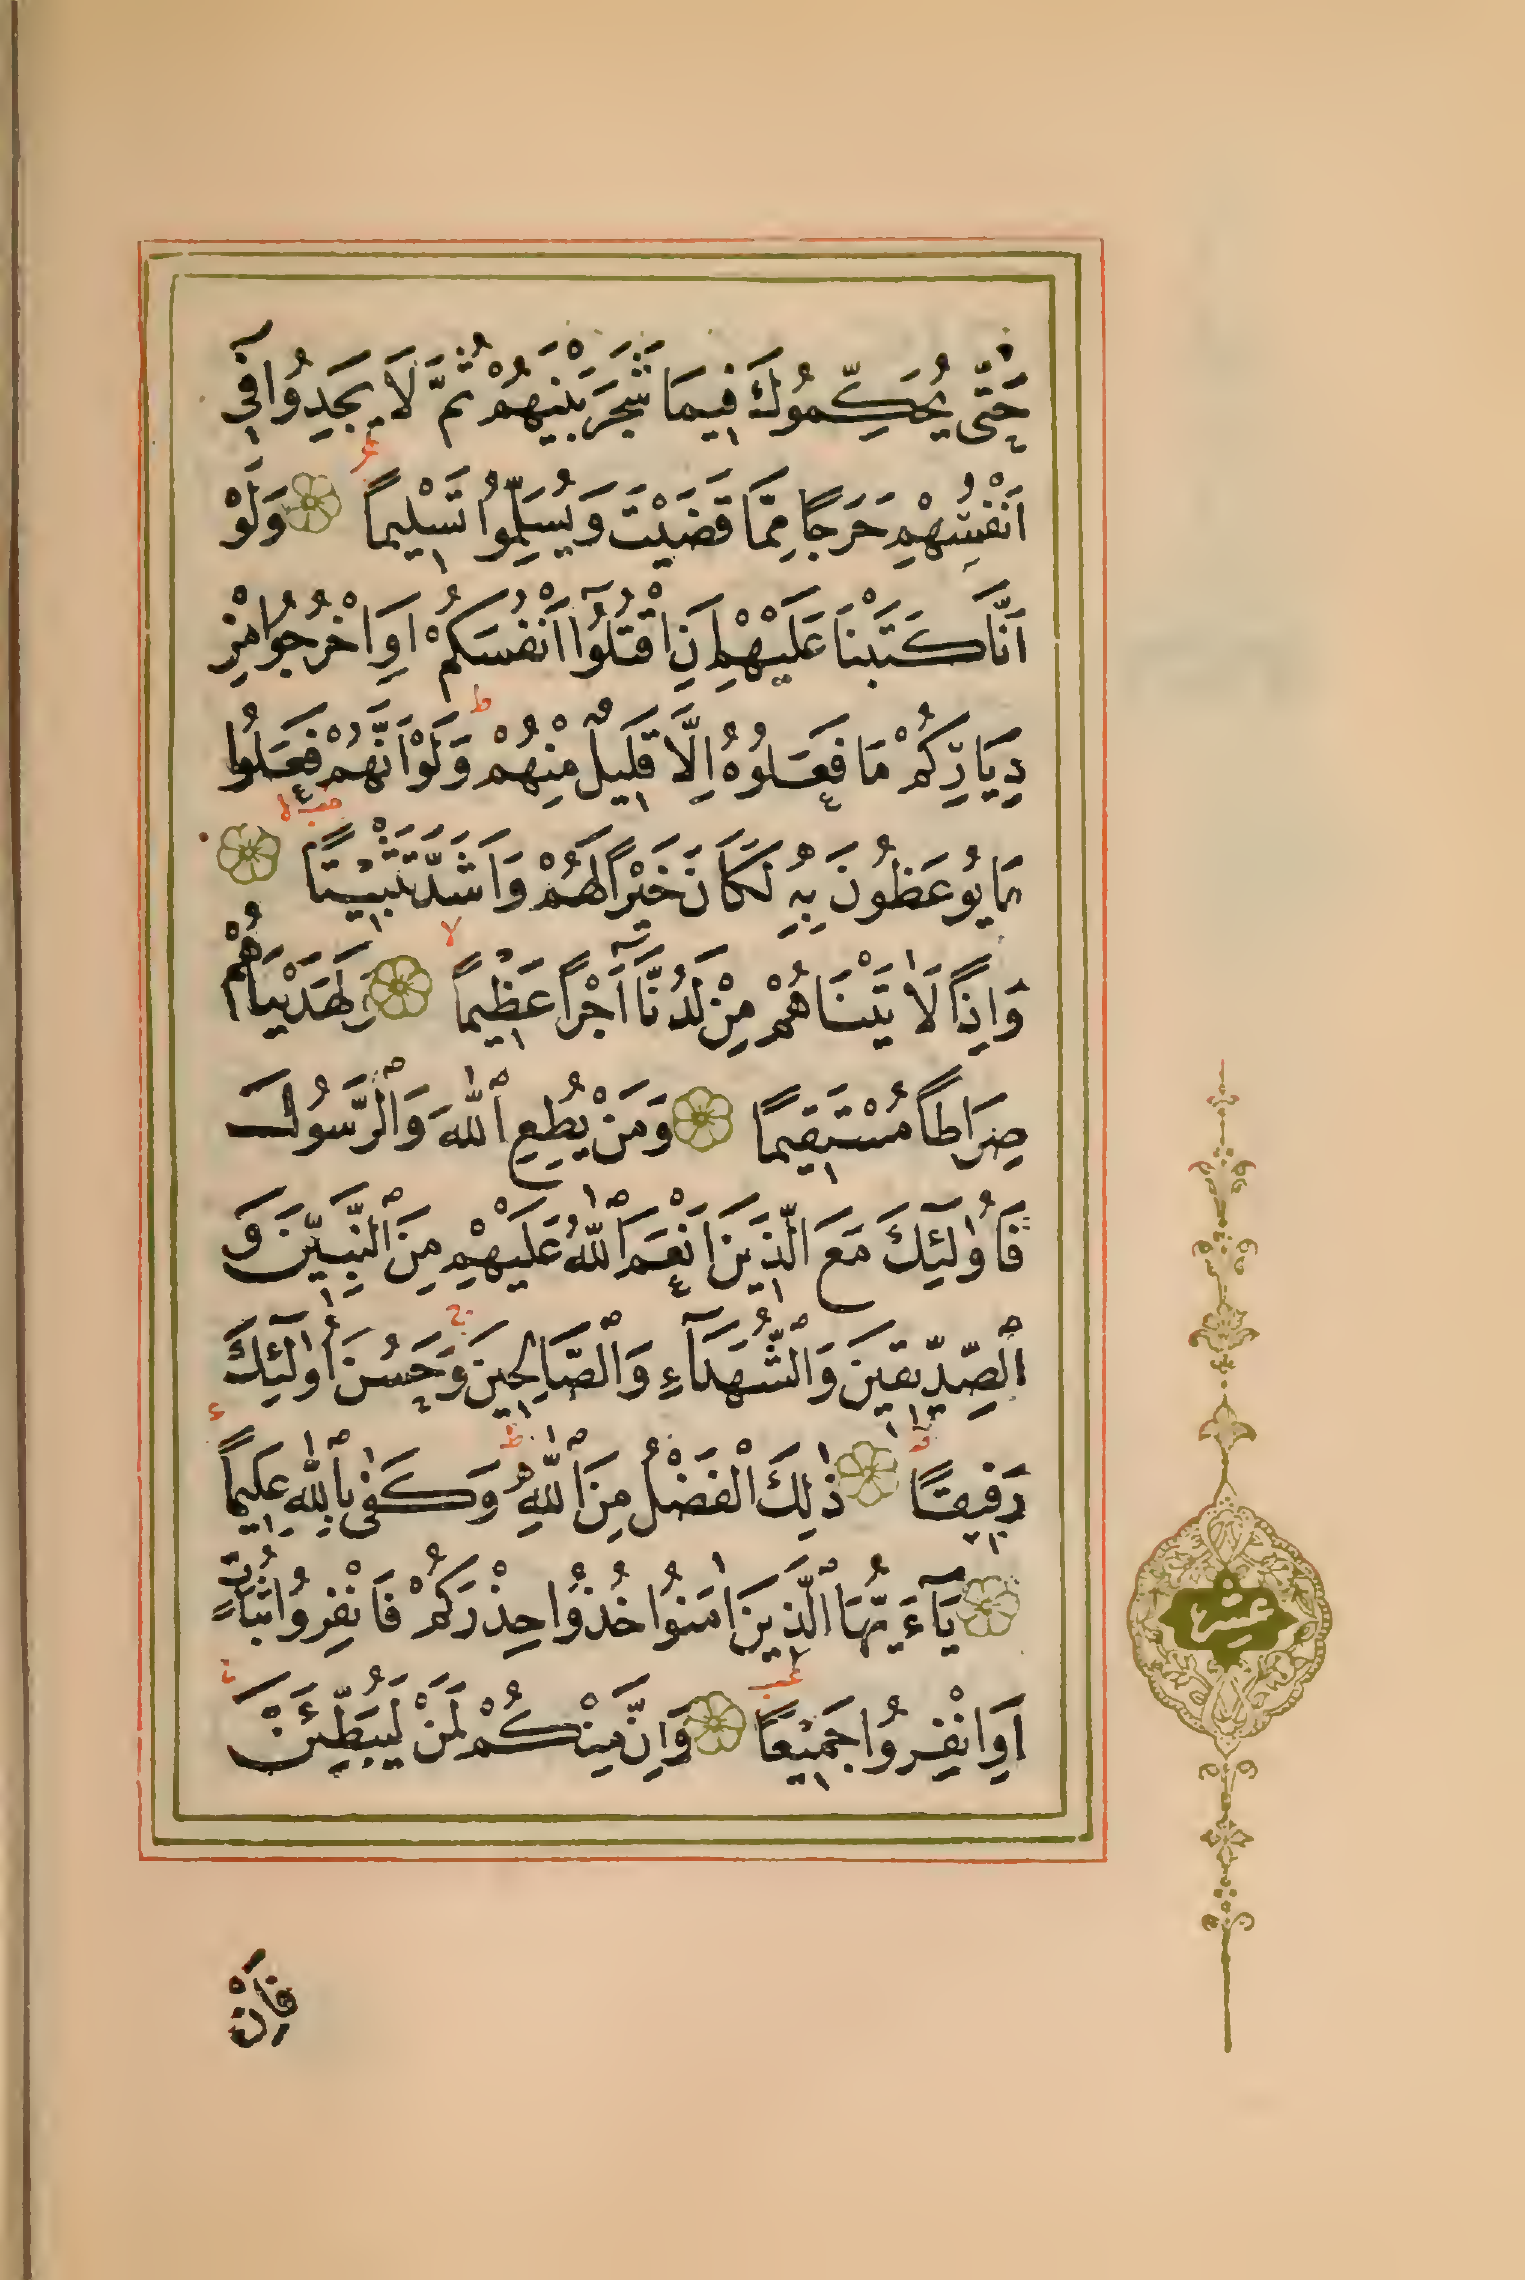 حَتّٰى يُحَكِّمُوكَ فِيمَا شَجَرَ بَيْنَهُمْ ثُمَّ لَا يَجِدُوا فِٓي
اَنْفُسِهِمْ حَرَجًا مِمَّا قَضَيْتَ وَيُسَلِّمُوا تَسْلِيماً وَلَوْ
اَنَّا كَتَبْنَا عَلَيْهِمْ اَنِ اقْتُلُوٓا اَنْفُسَكُمْ اَوِ اخْرُجُوا مِنْ
دِيَارِكُمْ مَا فَعَلُوهُ اِلَّا قَلِيلٌ مِنْهُمْ وَلَوْ اَنَّهُمْ فَعَلُوا
مَا يُوعَظُونَ بِهِ لَكَانَ خَيْرًا لَهُمْ وَاَشَدَّ تَثْبِيْتًا
وَاِذًا لَاٰتَيْنَاهُمْ مِنْ لَدُنَّٓا اَجْرًا عَظِيماً وَلَهَدَيْنَاهُمْ
صِرَاطًا مُسْتَقِيمًا وَمَنْ يُطِعِ ٱللّٰهَ وَٱلرَّسُولَ
فَاُوٰلٓئِكَ مَعَ الَّذِينَ اَنْعَمَ ٱللّٰهُ عَلَيْهِمْ مِنَ ٱلنَّبِيِّنَ وَ
ٱلصِّدِّيقِينَ وَٱلشُّهَدَٓاءِ وَٱلصَّالِحِينَ وَحَسُنَ اُوٰلٓئِكَ
رَفِيقًا ذٰلِكَ الْفَضْلُ مِنَ ٱللّٰهِ وَكَفٰى بِٱللّٰهِ عَلِيماً
يَٓاءَيُّهَا ٱلَّذِينَ اٰمَنُوا خُذُوا حِذْرَكُمْ فَانْفِرُوا ثُبَاتٍ
اَوِ انْفِرُوا جَمِيْعًا وَاِنَّ مِنْكُمْ لَمَنْ لَيُبَطِّئَنْ
عشر
فَاِنْ